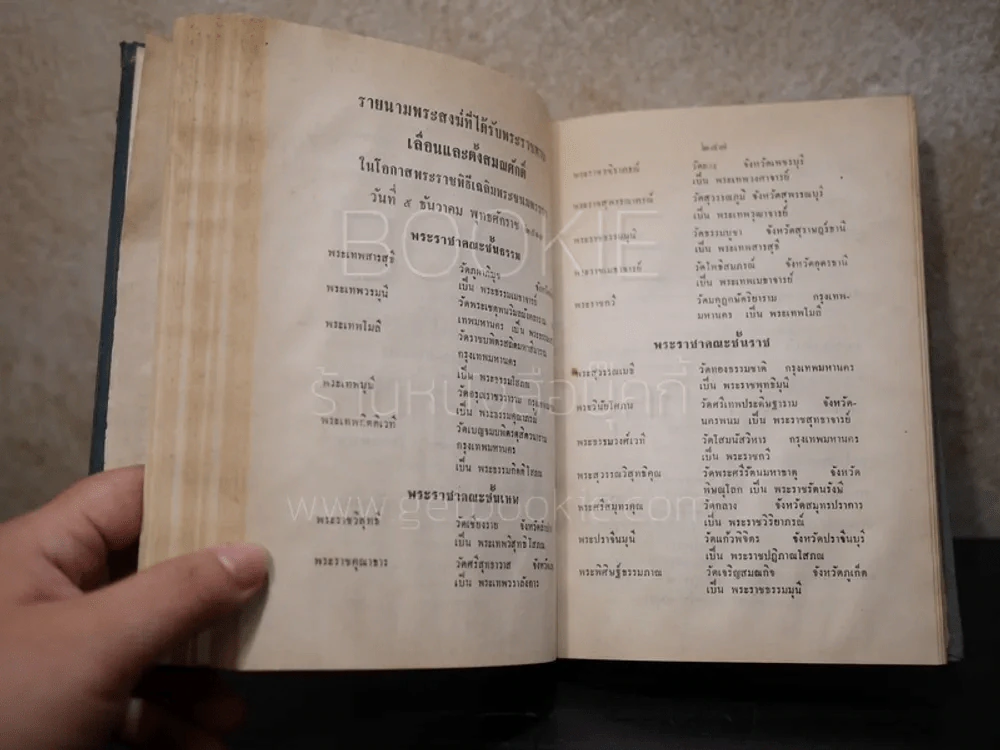 รายนามพระสงฆ์ที่ได้รับพระราชทาน
เลื่อนและตั้งสมณศักดิ์
ในโอกาสพระราชพิธีเฉลิมพระชนมพรรษา
วันที่ ๕ ธันวาคม พุทธศักราช
พระราชาคณะชั้นธรรม
พระเทพสารสุธี
เป็น พระธรรมเมธาจารย์
พระเทพวรมุนี
วัดพระเชตุพนวิมลมังคลาราม
เทพมหานคร เป็น
พระเทพโมลี
วัดราชบพิตรสถิตมหาสีมาราม
กรุงเทพมหานคร
เป็น พระธรรมโสภณ
พระเทพมุนี
วัดอรุณราชวราราม
เป็น พระธรรมคุณาภรณ์
พระเทพกิตติเวที
วัดเบญจมบพิตรดุสิตวนาราม
กรุงเทพมหานคร
เป็น พระธรรมกิตติโสภณ
พระราชาคณะชั้นเทพ
พระราชวิสุทธิ
วัดเชียงราย
เป็น พระเทพวิสุทธิโสภณ
พระราชคุณาธาร
วัดศรีสุทธาราส
เป็น พระเทพวราลังการ
๒๔๗
จังหวัดเพชรบุรี
เป็น พระเทพวงศาจารย์
วัดสุวรรณภูมิ จังหวัดสุพรรณบุรี
เป็น พระเทพวุฒาจารย์
วัดธรรมบูชา จังหวัดสุราษฎร์ธานี
เป็น พระเทพสารสุธี
พระราชเมธาจารย์ วัดโพธิสมภรณ์ จังหวัดอุดรธานี
เป็น พระเทพเมธาจารย์
พระราชกวี วัดมกุฏกษัตริยาราม กรุงเทพ-
มหานคร เป็น พระเทพโมลี
พระราชาคณะชั้นราช
พระสุวรรณเมธี วัดทองธรรมชาติ กรุงเทพมหานคร
เป็น พระราชพุทธิมุนี
พระวินัยโศภน วัดศรีเทพประดิษฐาราม จังหวัด-
นครพนม เป็น พระราชสุทธาจารย์
พระธรรมวงศ์เวที วัดโสมนัสวิหาร กรุงเทพมหานคร
เป็น พระราชกวี
พระสุวรรณวิสุทธิคุณ วัดพระศรีรัตนมหาธาตุ จังหวัด
พิษณุโลก เป็น พระราชรัตนรังษี
พระศรีสมุทรคุณ วัดกลาง จังหวัดสมุทรปราการ
เป็น พระราชวิริยาภรณ์
พระปราจีนมุนี วัดแก้วพิจิตร จังหวัดปราจีนบุรี
เป็น พระราชปฏิภาณโสภณ
พระพิศิษฐ์ธรรมภาณ วัดเจริญสมณกิจ จังหวัดภูเก็ต
เป็น พระราชธรรมมุนี
BOOKIE
ร้านหนังสือบุ๊คกี้
www.getbookie.com